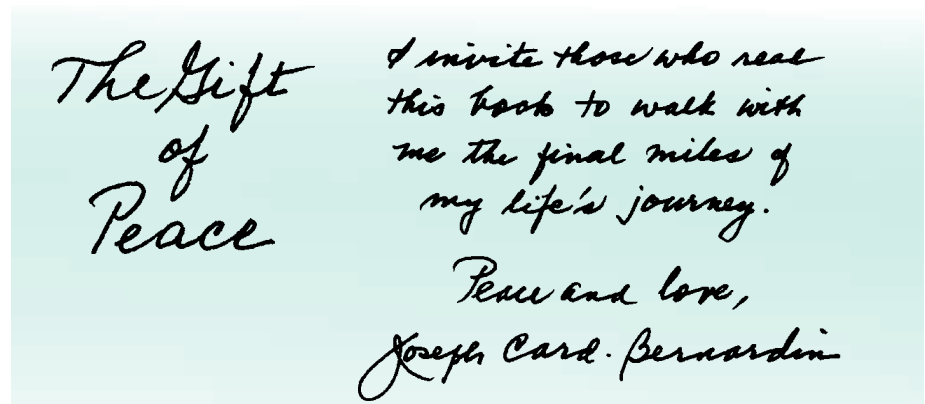 The Gift
of
Peace
I invite those who read
this book to walk with
me the final miles of
my life's journey.
Peace and love,
Joseph Card. Bernardin